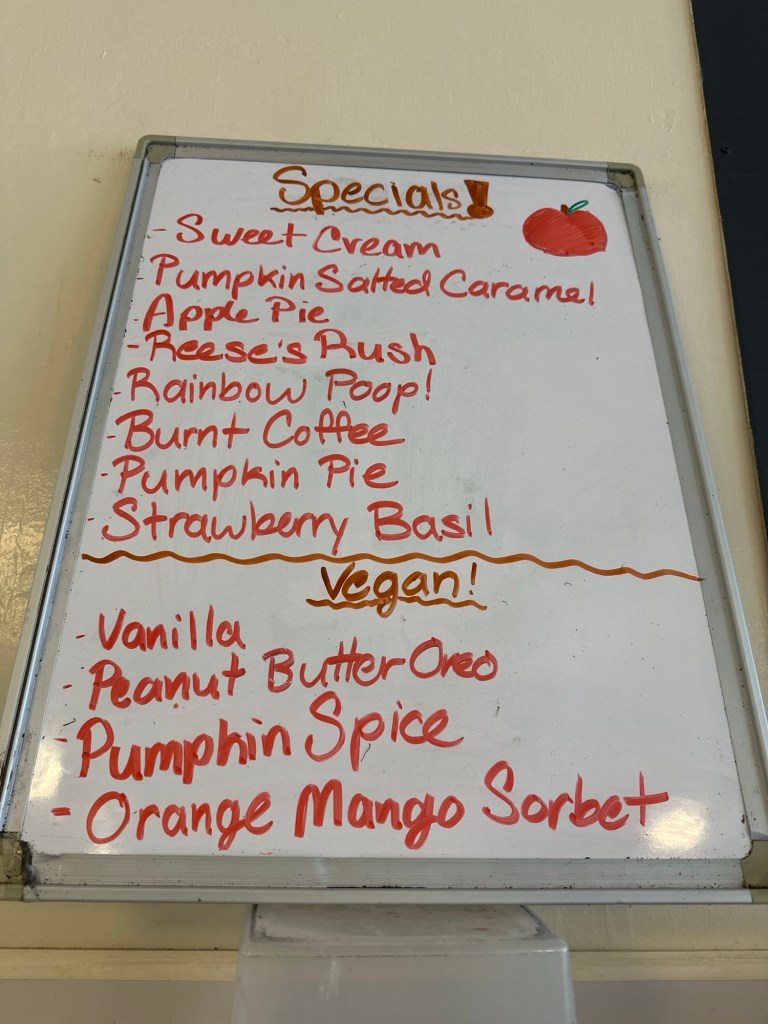 Specials!
- Sweet Cream
- Pumpkin Salted Caramel
- Apple Pie
- Reese's Rush
- Rainbow Poop!
- Burnt Coffee
- Pumpkin Pie
- Strawberry Basil
Vegan!
- Vanilla
- Peanut Butter Oreo
- Pumpkin Spice
- Orange Mango Sorbet